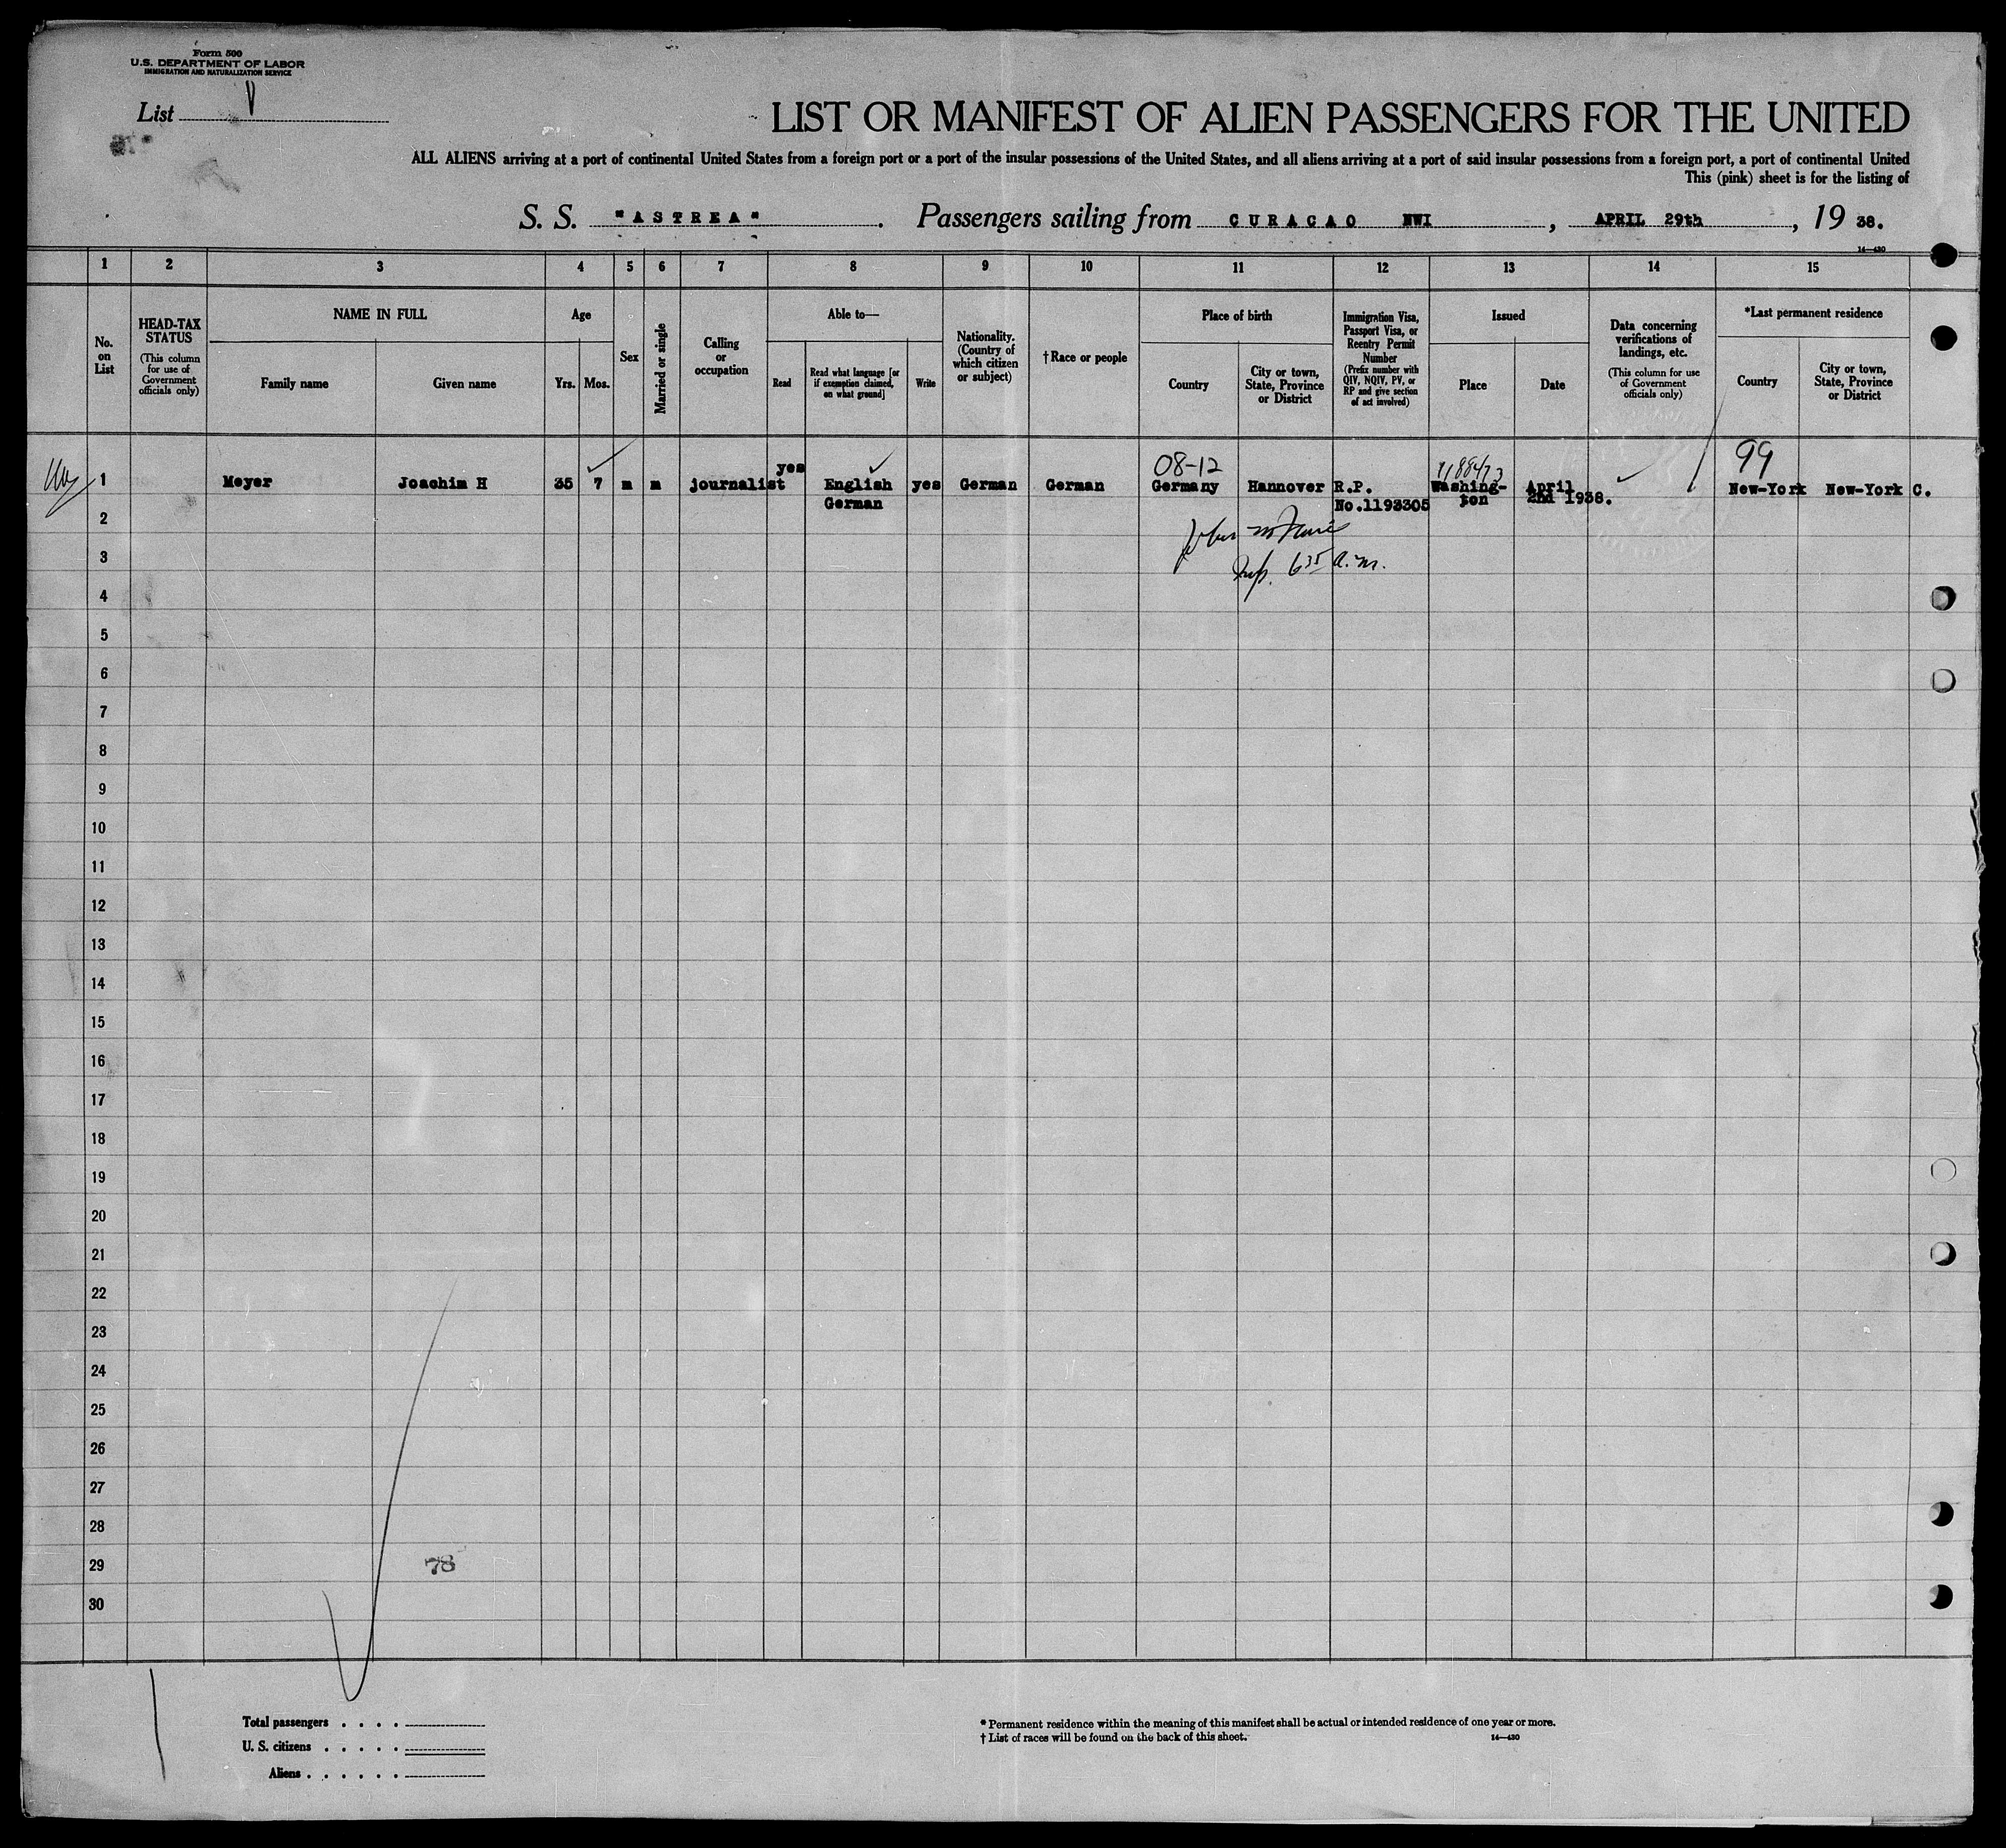 Form 500
U.S. DEPARTMENT OF LABOR
IMMIGRATION AND NATURALIZATION SERVICE
List
LIST OR MANIFEST OF ALIEN PASSENGERS FOR THE UNITED
ALL ALIENS arriving at a port of continental United States from a foreign port or a port of the insular possessions of the United States, and all aliens arriving at a port of said insular possessions from a foreign port, a port of continental United
This (pink) sheet is for the listing of
S. S. "ASTREA". Passengers sailing from CURACAO NWI, APRIL 29th, 19 38.
14—430
1 2 3 4 5 6 7 8 9 10 11 12 13 14 15
No. on List
HEAD-TAX STATUS
(This column for use of Government officials only)
NAME IN FULL
Family name
Given name
Age
Yrs. Mos.
Sex
Married or single
Calling or occupation
Able to—
Read
Read what language [or if exemption claimed, on what ground]
Write
Nationality. (Country of which citizen or subject)
†Race or people
Place of birth
Country
City or town, State, Province or District
Immigration Visa, Passport Visa, or Reentry Permit Number
(Prefix number with QIV, NQIV, PV, or RP and give section of act involved)
Issued
Place
Date
Data concerning verifications of landings, etc.
(This column for use of Government officials only)
*Last permanent residence
Country
City or town, State, Province or District
08-12
99
yes
1 Meyer Joachim H 35 7 m m journalist English yes German German Germany Hannover R.P. Washing- April New-York New-York C.
German No.1193305 ton 2nd 1938.
2
3
635 a.m.
4
5
6
7
8
9
10
11
12
13
14
15
16
17
18
19
20
21
22
23
24
25
26
27
28
29
78
30
Total passengers . . . .
U. S. citizens . . . . .
Aliens . . . . . .
* Permanent residence within the meaning of this manifest shall be actual or intended residence of one year or more.
† List of races will be found on the back of this sheet.
14—430